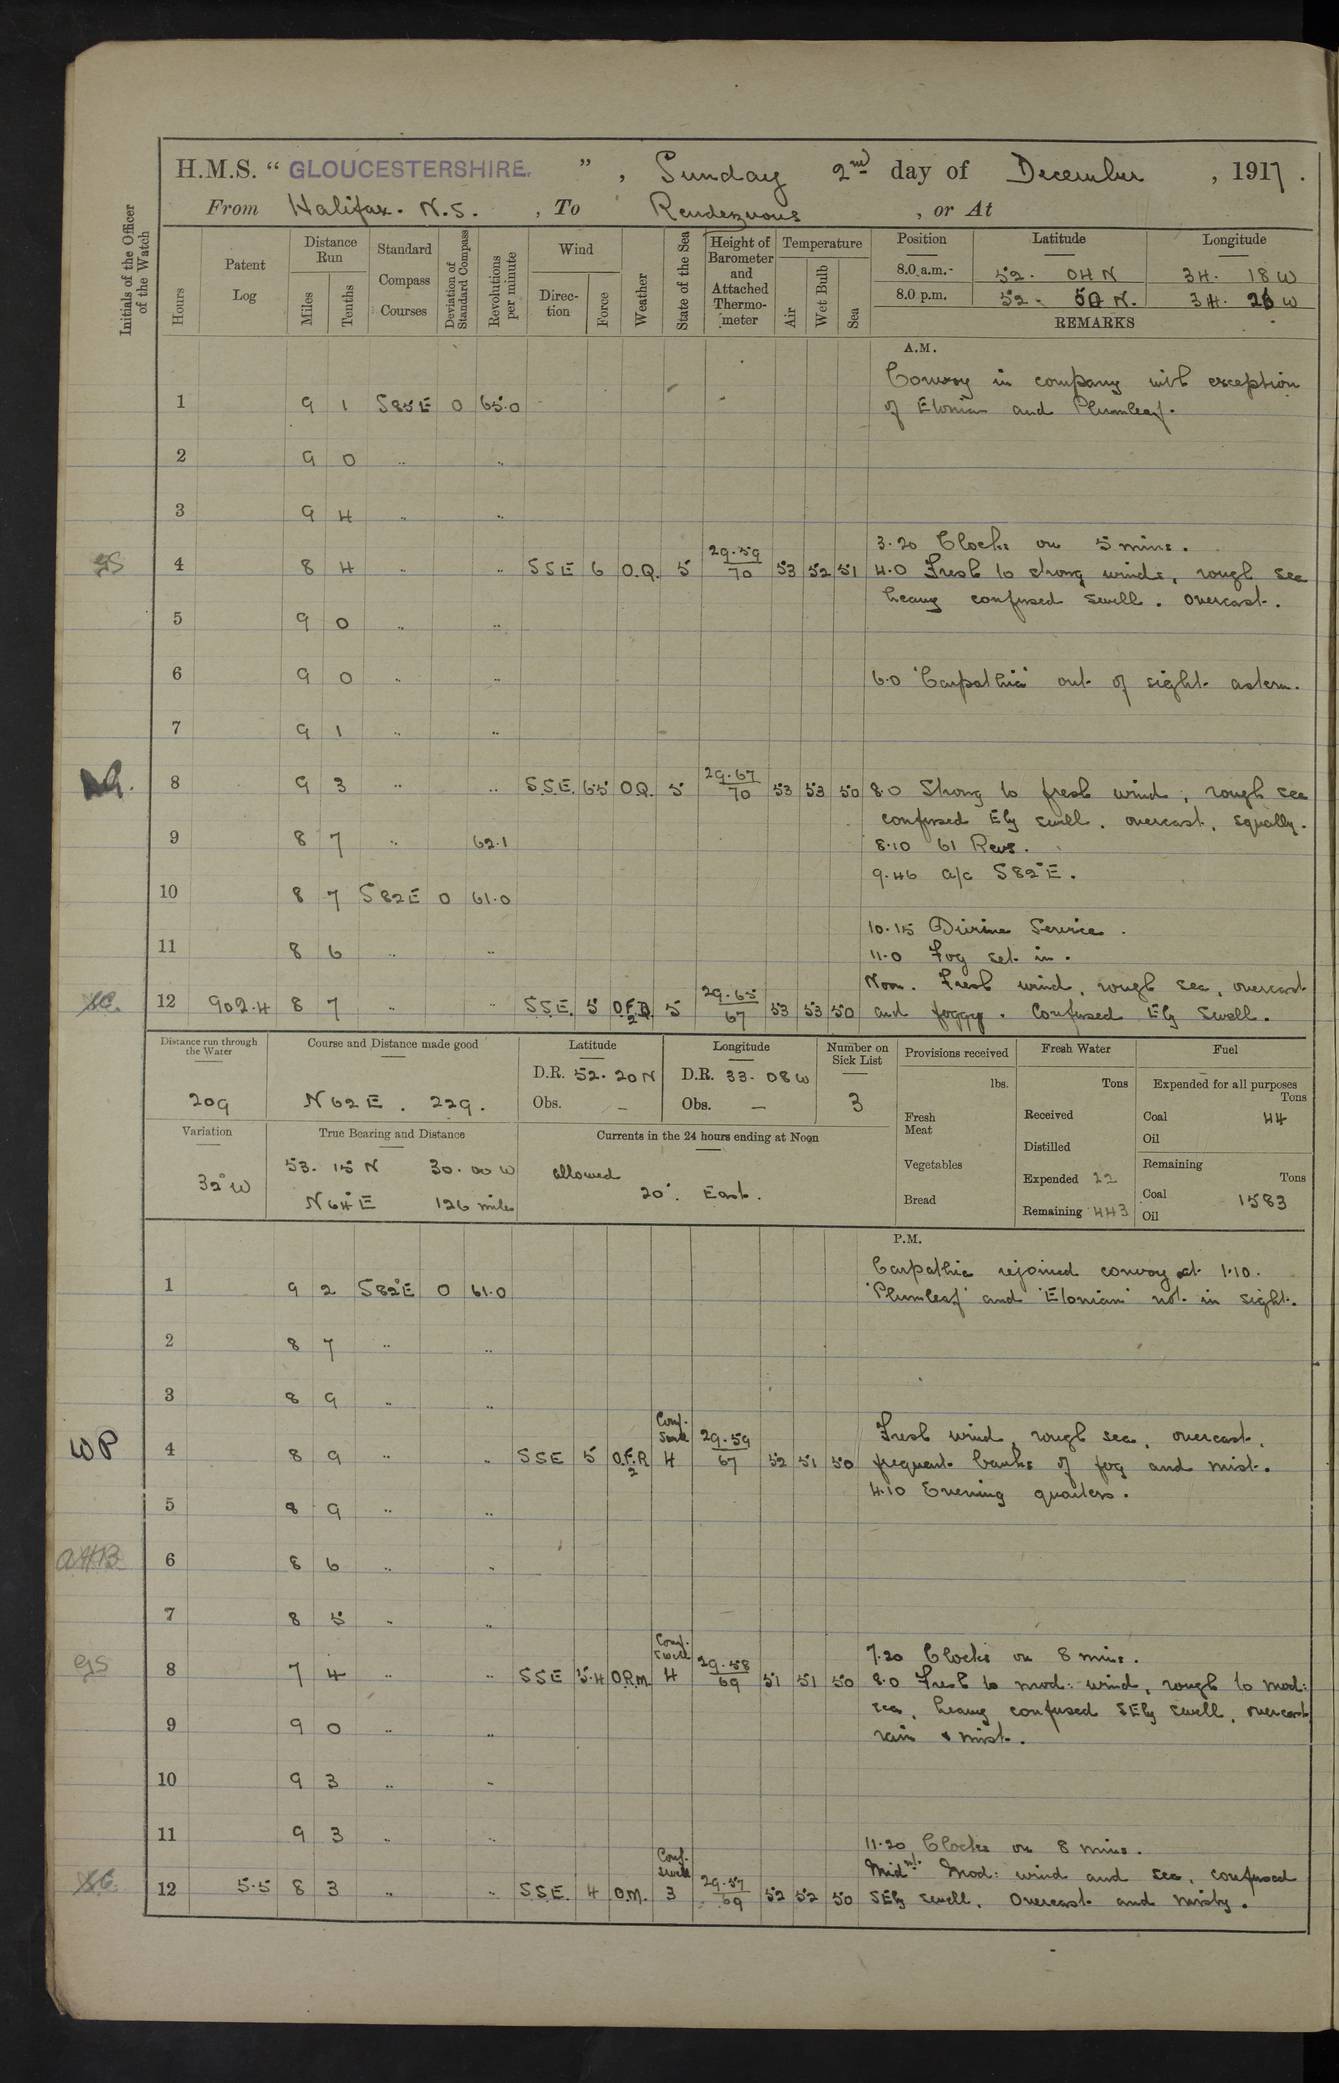 H.M.S. “ GLOUCESTERSHIRE. ” , Sunday 2nd day of December , 1917 .
From Halifax. N.S. , To Rendezvous , or At
Initials of the Officer of the Watch
Hours
Patent Log
Distance Run
Miles
Tenths
Standard Compass Courses
Deviation of Standard Compass
Revolutions per minute
Wind
Direction
Force
Weather
State of the Sea
Height of Barometer and Attached Thermometer
Temperature
Air
Wet Bulb
Sea
Position Latitude Longitude
8.0 a.m. 52. 04 N 34. 18 W
8.0 p.m. 52. N. 34. W
REMARKS
A.M.
Convoy in company with exception
1 9 1 S85E 0 65.0 of Etonian and Plumleaf.
2 9 0 .. ..
3 9 4 .. ..
3.20 Clocks on 5 mins.
GS 4 8 4 .. .. SSE 6 O.Q. 5 29.59/70 53 52 51 4.0 Fresh to strong winds, rough sea
heavy confused swell. overcast.
5 9 0 .. ..
6 9 0 .. .. 6.0 'Carpathia' out of sight astern.
7 9 1 .. ..
8 9 3 .. .. S.S.E. 6.5 O.Q. 5 29.67/70 53 53 50 8.0 Strong to fresh wind, rough sea
confused Ely swell. overcast, squally.
9 8 7 .. 62.1 8.10 61 Revs.
9.46 a/c S82°E.
10 8 7 S82E 0 61.0
10.15 Divine Service.
11 8 6 .. .. 11.0 Fog set in.
Noon. Fresh wind, rough sea, overcast
12 902.4 8 7 .. .. S.S.E. 5 29.65/67 53 53 50 and foggy. Confused Ely Swell.
Distance run through the Water
209
Course and Distance made good
N62E. 229.
Latitude
D.R. 52. 20 N
Obs. –
Longitude
D.R. 33. 08 W
Obs. –
Number on Sick List
3
Provisions received
lbs.
Fresh Meat
Vegetables
Bread
Fresh Water
Tons
Received
Distilled
Expended 22
Remaining 443
Fuel
Expended for all purposes
Tons
Coal 44
Oil
Remaining
Tons
Coal 1583
Oil
Variation
32°W
True Bearing and Distance
53. 15 N 30. 00 W
N64°E 126 miles
Currents in the 24 hours ending at Noon
allowed
20'. East.
P.M.
Carpathia rejoined convoy at 1.10.
1 9 2 S82°E 0 61.0 'Plumleaf' and 'Etonian' not in sight.
2 8 7 .. ..
3 8 9 .. ..
Conf. Swell
Fresh wind, rough sea, overcast,
WP 4 8 9 .. .. SSE 5 O.F.R 2 4 29.59/67 52 51 50 frequent banks of fog and mist.
4.10 Evening quarters.
5 8 9 .. ..
AHB 6 8 6 .. ..
7 8 5 .. ..
Conf. Swell
7.20 Clocks on 8 mins.
GS 8 7 4 .. .. SSE 5.4 O.R.M. 4 29.58/69 51 51 50 8.0 Fresh to mod: wind, rough to mod:
sea, heavy confused SEly swell, overcast
9 9 0 .. .. rain & mist.
10 9 3 .. ..
11 9 3 .. ..
11.20 Clocks on 8 mins.
Conf. Swell
Midnt. Mod: wind and sea, confused
12 5.5 8 3 .. .. S.S.E. 4 O.M. 3 29.57/69 52 52 50 SEly swell. Overcast and misty.